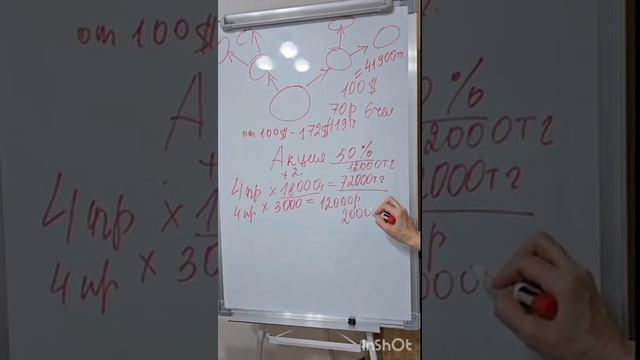 от 100$
= 41300тг
100$
70р 6 чел.
от 100$ - 172$
Акция 50%
+2
12000тг
4 пр × 18000 = 72000тг
4 пр × 3000 = 12000р
2000
InShOt